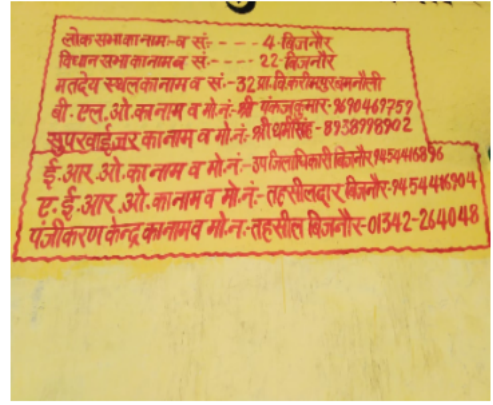 लोक सभा का नाम-व सं:- - - - 4-बिजनौर
विधान सभा का नाम व सं:- - - - 22-बिजनौर
मतदेय स्थल का नाम व सं.-32 प्रा.वि.करीमपुर बमनौली
बी. एल. ओ. का नाम व मो.नं:-श्री पंकज कुमार-9690469759
सुपरवाईजर का नाम व मो.नं:-श्री धर्मसिंह-8938998902
ई.आर.ओ. का नाम व मो.नं:-उपजिलाधिकारी बिजनौर 9454416896
ए.ई.आर.ओ. का नाम व मो.नं:-तहसीलदार बिजनौर-9454416904
पंजीकरण केन्द्र का नाम व मो.नं:-तहसील बिजनौर-01342-264048